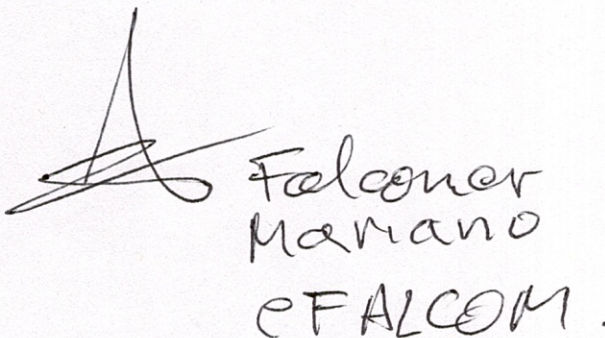 Falconer
Mariano
eFALCOM.